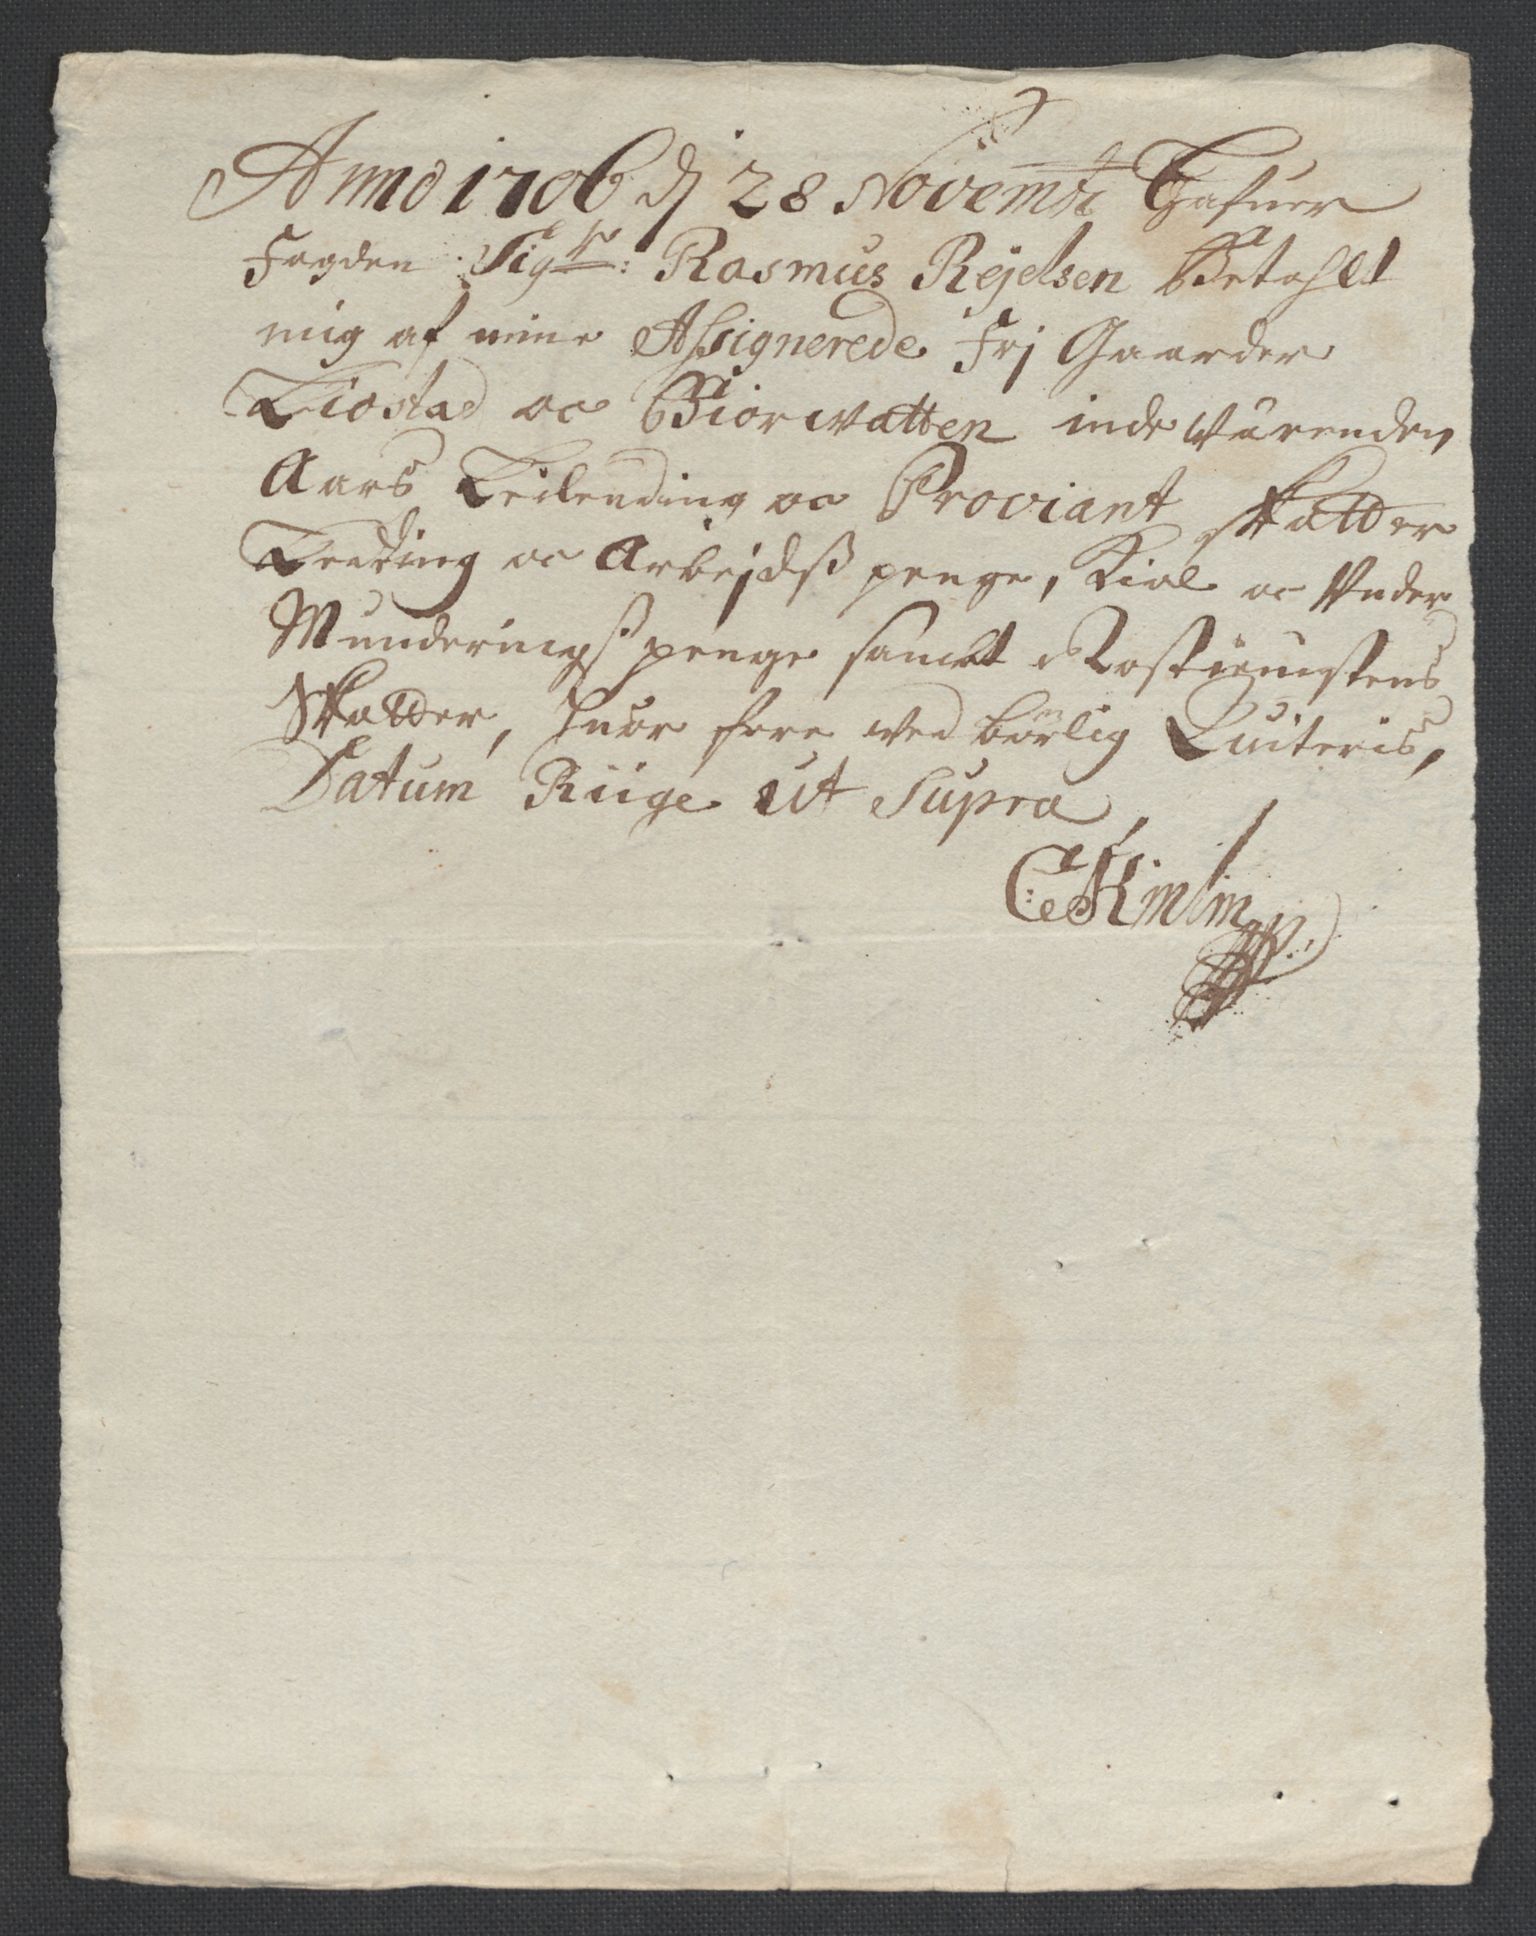 Anno 1706 dj 28 Novembr: Hafuer
Fogden Sigr: Rasmus Rejelsen Betahlt
mig af mine Assignerede Frj Gaarder
Kiostad oc Biorwatten indeværenden
Aars Leilending oc Proviant skatter
Leeding oc Arbejdsß penge, Kiol oc Under
Munderingß penge sambt Rostienistens
Skatter, huor fore ved börlig Quiteris,
Datum Riige ut Supra,